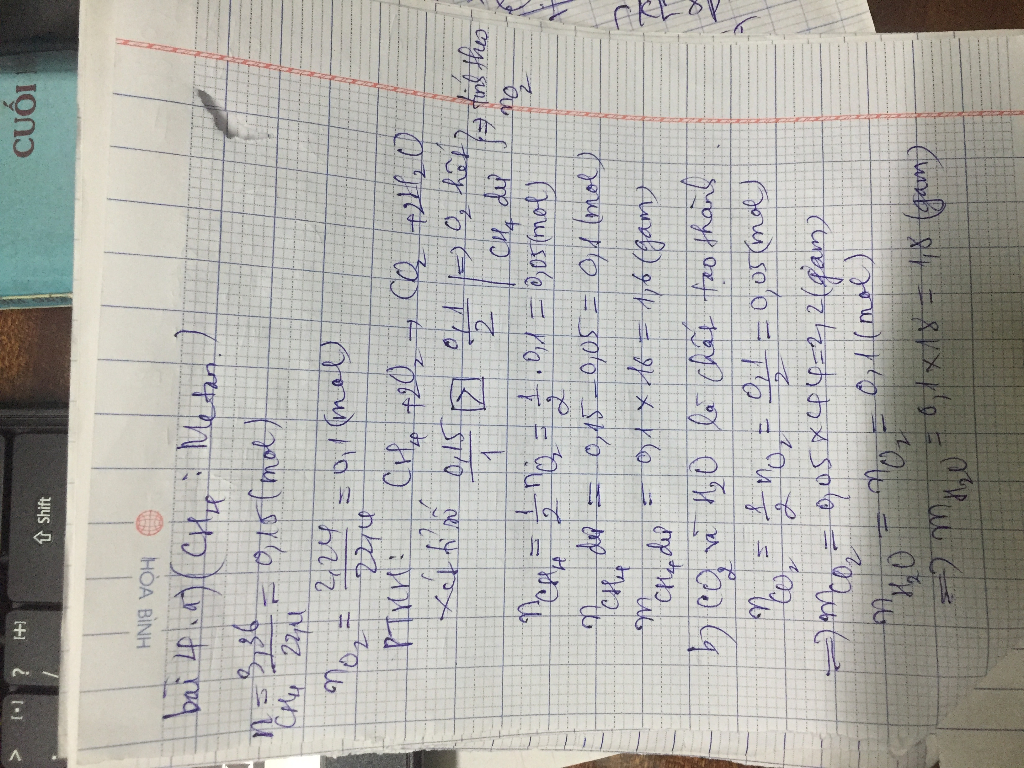 CUỐI
shift
HÒA BÌNH
bài 4. a) (CH4 : Metan.)
nCH4 = 3,36/22,4 = 0,15 (mol)
nO2 = 2,24/22,4 = 0,1 (mol)
PTHH: CH4 + 2O2 → CO2 + 2H2O
Xét tỉ số 0,15/1 > 0,1/2 => O2 hết, CH4 dư => tính theo nO2
nCH4 = 1/2 nO2 = 1/2 . 0,1 = 0,05 (mol)
nCH4 dư = 0,15 - 0,05 = 0,1 (mol)
mCH4 dư = 0,1 x 16 = 1,6 (gam)
b) CO2 và H2O là chất tạo thành
nCO2 = 1/2 nO2 = 0,1/2 = 0,05 (mol)
=> mCO2 = 0,05 x 44 = 2,2 (gam)
nH2O = nO2 = 0,1 (mol)
=> mH2O = 0,1 x 18 = 1,8 (gam)